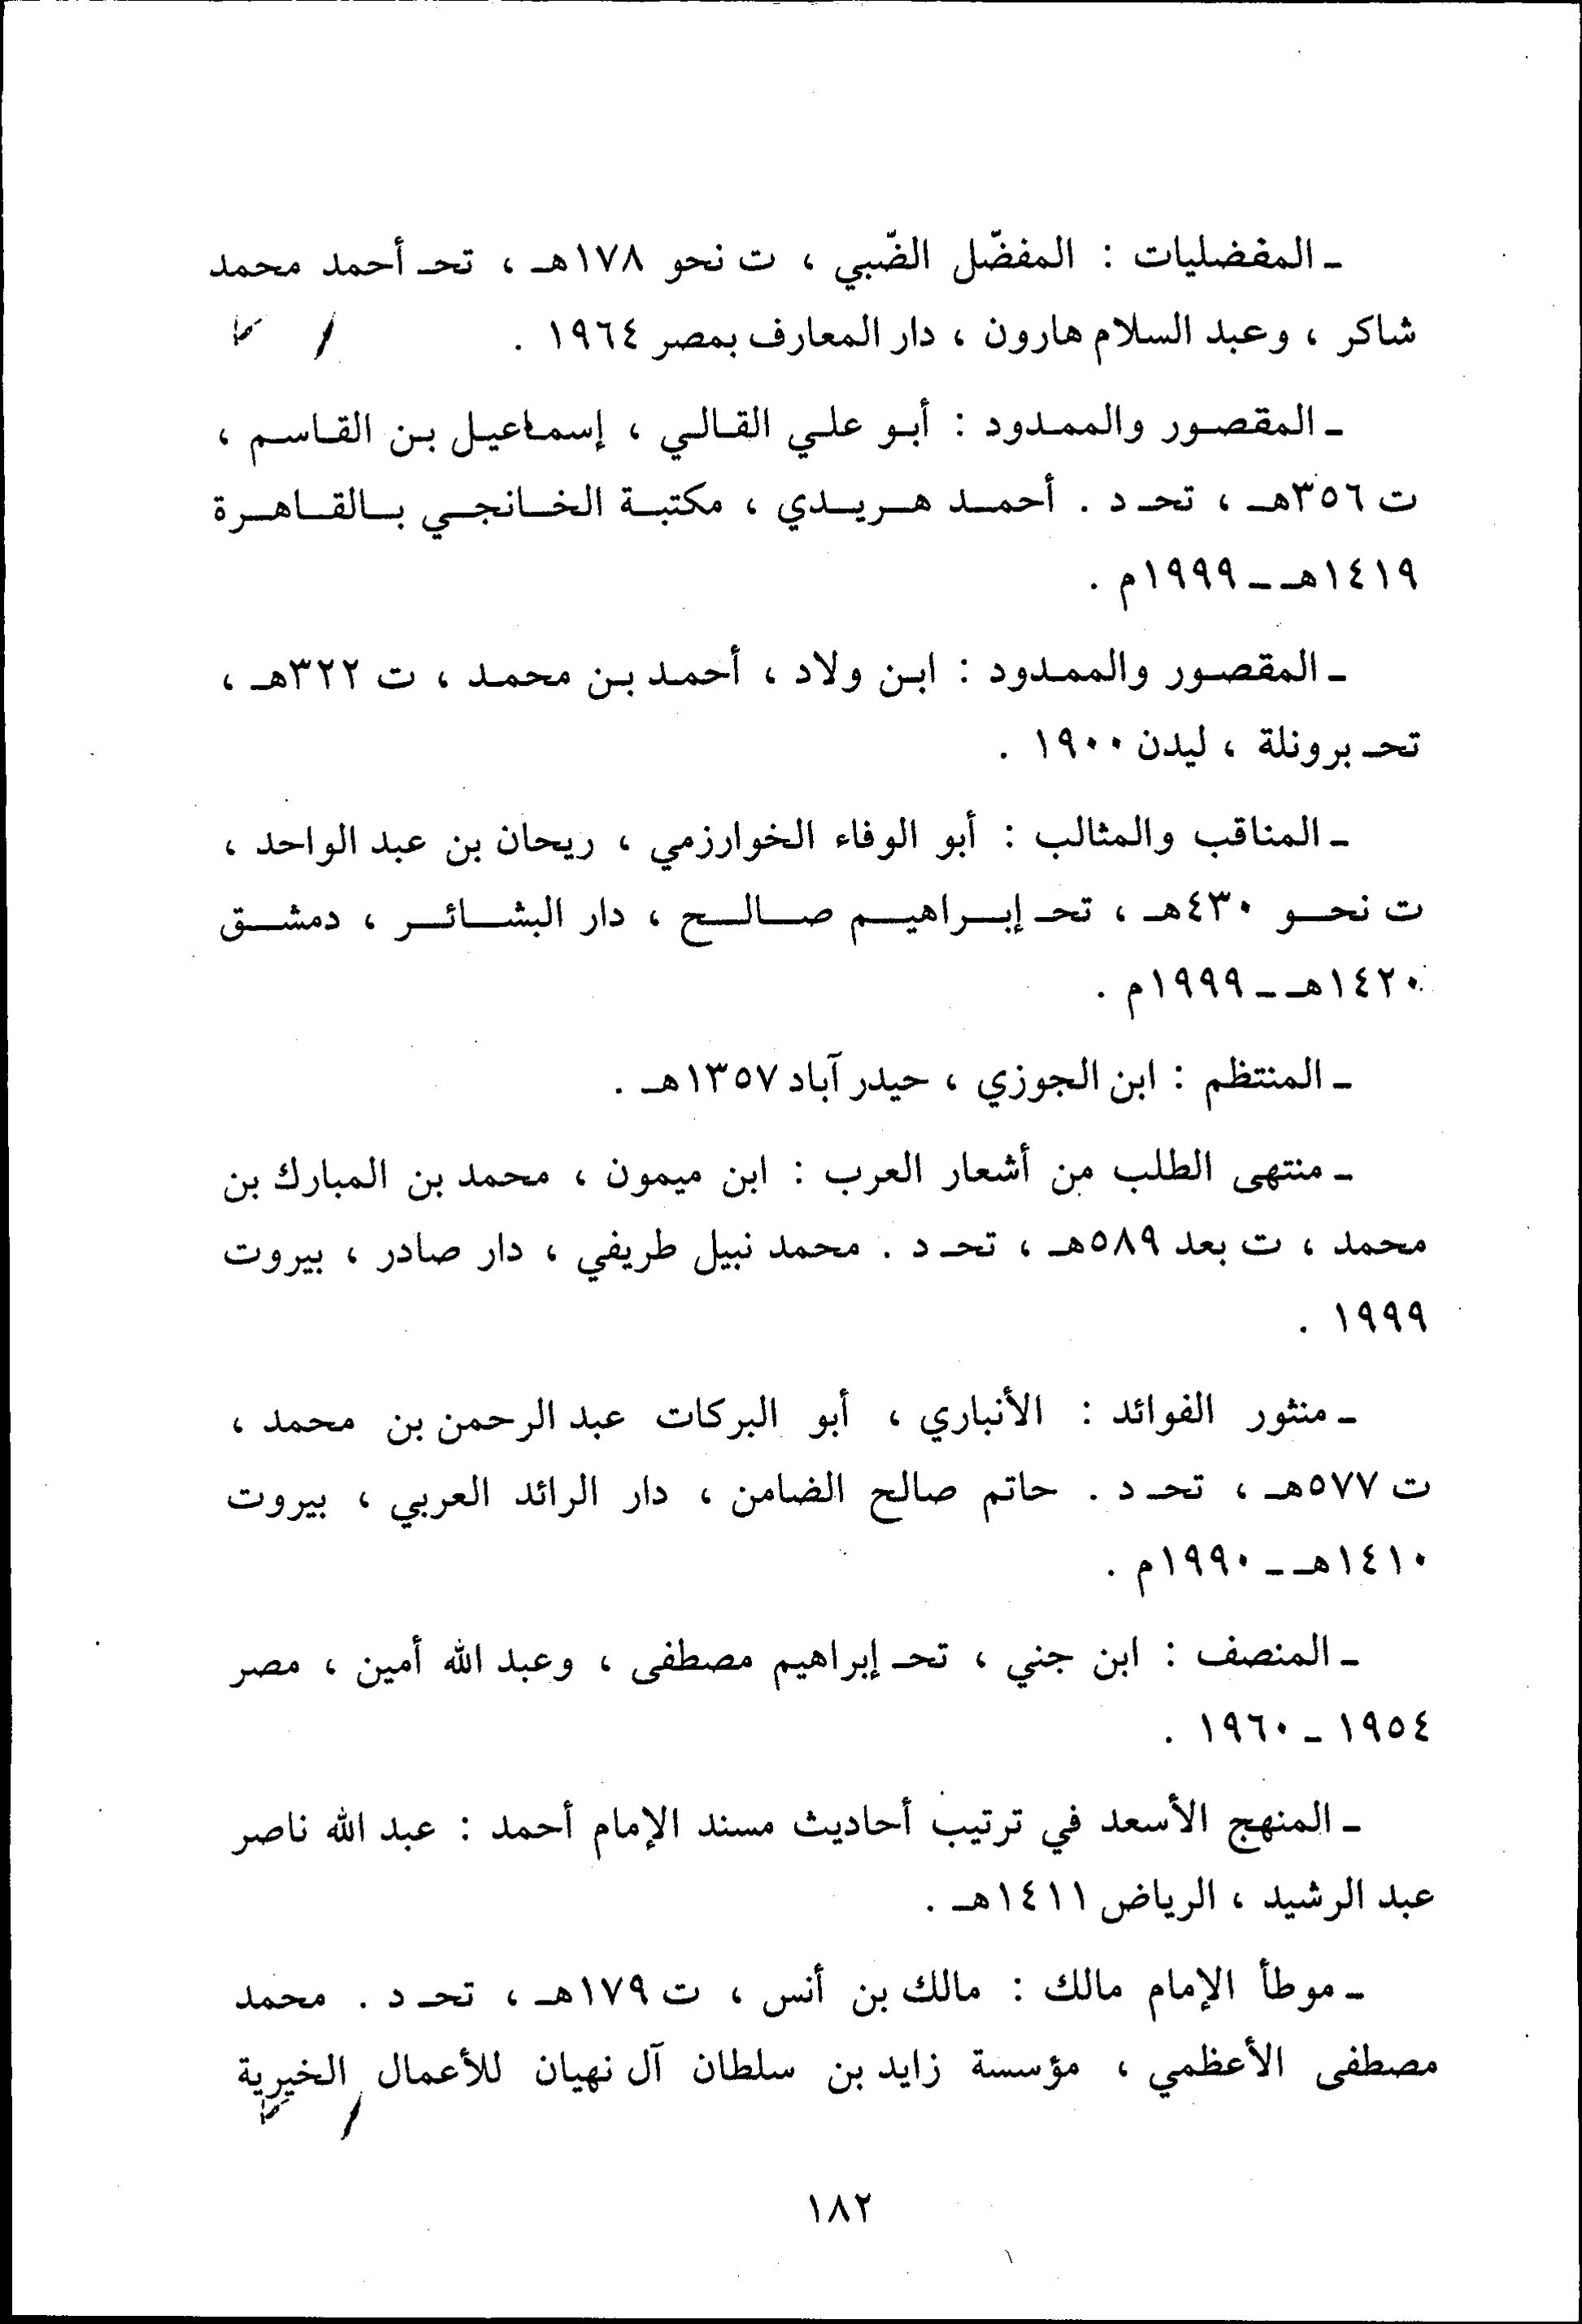 ـ المفضليات : المفضّل الضّبي ، ت نحو ١٧٨هـ ، تحـ أحمد محمد
شاكر ، وعبد السلام هارون ، دار المعارف بمصر ١٩٦٤ .
ـ المقصور والممدود : أبو علي القالي ، إسماعيل بن القاسم ،
ت ٣٥٦هـ ، تحـ د . أحمد هريدي ، مكتبة الخانجي بالقاهرة
١٤١٩هـ ـ ١٩٩٩م .
ـ المقصور والممدود : ابن ولاد ، أحمد بن محمد ، ت ٣٢٢هـ ،
تحـ برونلة ، ليدن ١٩٠٠ .
ـ المناقب والمثالب : أبو الوفاء الخوارزمي ، ريحان بن عبد الواحد ،
ت نحو ٤٣٠هـ ، تحـ إبراهيم صالح ، دار البشائر ، دمشق
١٤٢٠هـ ـ ١٩٩٩م .
ـ المنتظم : ابن الجوزي ، حيدر آباد ١٣٥٧هـ .
ـ منتهى الطلب من أشعار العرب : ابن ميمون ، محمد بن المبارك بن
محمد ، ت بعد ٥٨٩هـ ، تحـ د . محمد نبيل طريفي ، دار صادر ، بيروت
١٩٩٩ .
ـ منثور الفوائد : الأنباري ، أبو البركات عبد الرحمن بن محمد ،
ت ٥٧٧هـ ، تحـ د . حاتم صالح الضامن ، دار الرائد العربي ، بيروت
١٤١٠هـ ـ ١٩٩٠م .
ـ المنصف : ابن جني ، تحـ إبراهيم مصطفى ، وعبد الله أمين ، مصر
١٩٥٤ ـ ١٩٦٠ .
ـ المنهج الأسعد في ترتيب أحاديث مسند الإمام أحمد : عبد الله ناصر
عبد الرشيد ، الرياض ١٤١١هـ .
ـ موطأ الإمام مالك : مالك بن أنس ، ت ١٧٩هـ ، تحـ د . محمد
مصطفى الأعظمي ، مؤسسة زايد بن سلطان آل نهيان للأعمال الخيرية
١٨٢